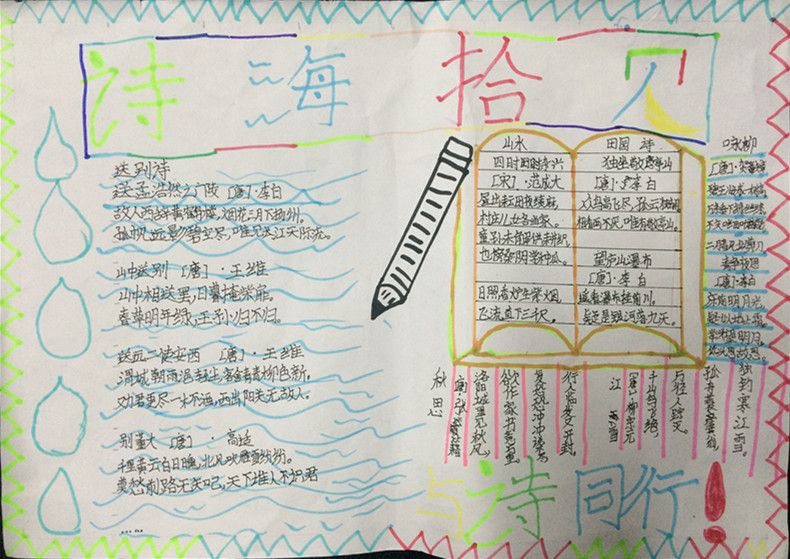 诗海拾贝
送别诗
送孟浩然之广陵 [唐]·李白
故人西辞黄鹤楼,烟花三月下扬州。
孤帆远影碧空尽,唯见长江天际流。
山中送别 [唐]·王维
山中相送罢,日暮掩柴扉。
春草明年绿,王孙归不归。
送元二使安西 [唐]·王维
渭城朝雨浥轻尘,客舍青青柳色新。
劝君更尽一杯酒,西出阳关无故人。
别董大 [唐]·高适
千里黄云白日曛,北风吹雁雪纷纷。
莫愁前路无知己,天下谁人不识君
山水
四时田园杂兴
[宋]·范成大
昼出耘田夜绩麻,
村庄儿女各当家。
童孙未解供耕织,
也傍桑阴学种瓜。
日照香炉生紫烟,
飞流直下三千尺,
田园诗
独坐敬亭山
[唐]·李白
众鸟高飞尽,孤云独闲。
相看两不厌,唯有敬亭山。
望庐山瀑布
[唐]·李白
遥看瀑布挂前川。
疑是银河落九天。
咏柳
[唐]·贺知章
碧玉妆成一树高,
万条垂下绿丝绦。
不知细叶谁裁出,
二月春风似剪刀
静夜思
[唐]·李白
床前明月光,
疑是地上霜。
举头望明月,
低头思故乡。
秋思
[唐]·张籍
洛阳城里见秋风,
欲作家书意万重。
复恐匆匆说不尽,
行人临发又开封。
江雪
[唐]·柳宗元
千山鸟飞绝,
万径人踪灭。
孤舟蓑笠翁,
独钓寒江雪。
与诗同行!